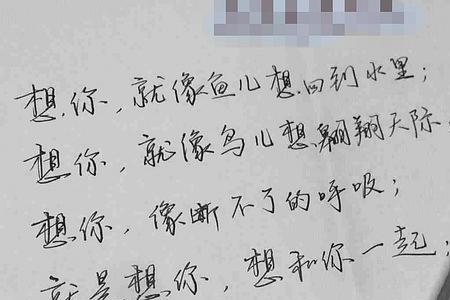 想你，就像鱼儿想回到水里；
想你，就像鸟儿想翱翔天际
想你，像断不了的呼吸；
就是想你，想和你一起；